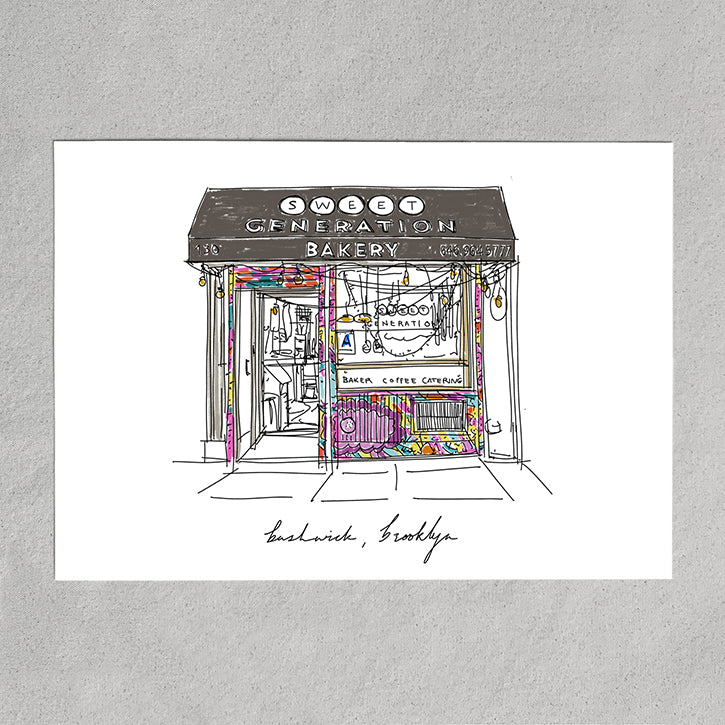 SWEET
GENERATION
130 BAKERY 646.904.5777
SWEET
GENERATION
A
BAKER COFFEE CATERING
bushwick, brooklyn